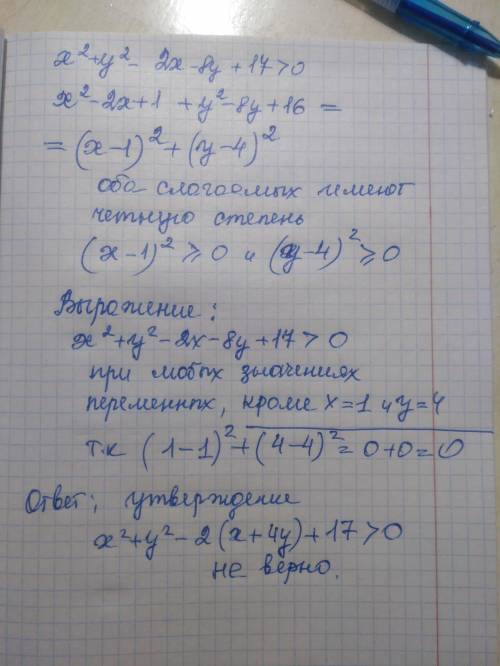 x²+y²- 2x-8y+17>0
x²-2x+1 +y²-8y+16 =
= (x-1)²+(y-4)²
оба слагаемых имеют
четную степень
(x-1)²⩾0 и (y-4)²⩾0
Выражение:
x²+y²-2x-8y+17>0
при любых значениях
переменных, кроме x=1 и y=4
т.к (1-1)²+(4-4)²=0+0=0
Ответ: утверждение
x²+y²-2(x+4y)+17>0
не верно.